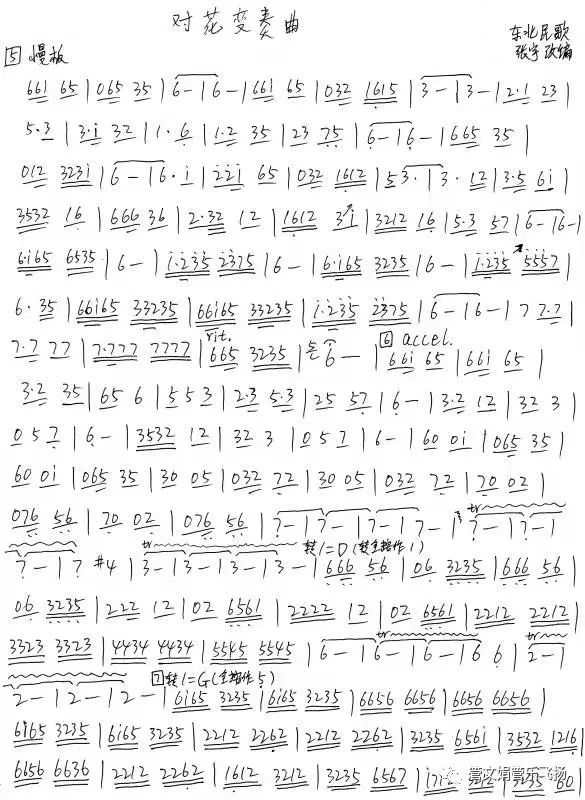 对花变奏曲
东北民歌
张宇改编
5 慢板
661 65 | 065 35 | 6 - | 6 - | 661 65 | 032 1615 | 3 - | 3 - | 2·1 23 |
5·3 | 3·i 32 | 1·6 | 1·2 35 | 23 75 | 6 - | 6 - | 665 35 |
012 323i | 6 - | 6·i | i̇2̇i 65 | 032 1612 | 5 3· | 3·12 | 3·5 6i |
3532 16 | 666 36 | 2·32 12 | 1612 3i | 3212 16 | 5·3 57 | 6 - | 6 - |
6·i65 6535 | 6 - | i·235 2375 | 6 - | 6·i65 3235 | 6 - | i·235 5557 |
6·35 | 66i65 33235 | 66i65 33235 | i·235 2375 | 6 - | 6 - | 7 7·7 |
7·7 77 | 7·777 7777 | rit. 665 3235 | 6 - | 6 accel. 66i 65 | 66i 65 |
3·2 35 | 65 6 | 5 5 3 | 2·3 5·3 | 25 57 | 6 - | 3·2 12 | 32 3 |
0 5 7 | 6 - | 3532 12 | 32 3 | 0 5 7 | 6 - | 60 0i | 065 35 |
60 0i | 065 35 | 30 05 | 032 72 | 30 05 | 032 72 | 70 02 |
076 56 | 70 02 | 076 56 | 7 - | 7 - | 7 - | 7 - | tr 7 - | 7 - |
7 - | 7 #4 | tr 3 - | 3 - | 3 - | 3 - | 转1=D (全按作1) 666 56 | 06 3235 | 666 56 |
06 3235 | 222 12 | 02 6561 | 2222 12 | 02 6561 | 2212 2212 |
3323 3323 | 4434 4434 | 5545 5545 | 6 - | tr 6 - | 6 - | 6 6 | tr 2 - |
2 - | 2 - | 2 - | 7 转1=G (全按作5) 6165 3235 | 6165 3235 | 6656 6656 | 6656 6656 |
6165 3235 | 6165 3235 | 2212 2262 | 2212 2262 | 3235 656i | 3532 1216 |
6656 6636 | 2212 2262 | 1612 3212 | 3235 6567 |
管文娟管乐飞扬